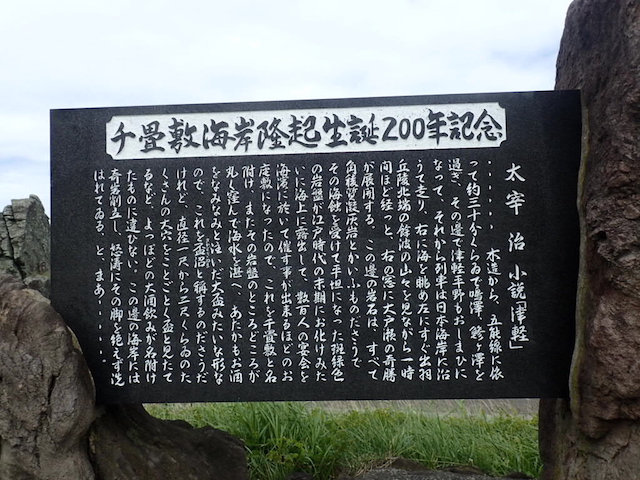 千畳敷海岸隆起生誕200年記念
太宰 治 小説「津軽」
・・・・・・木造から、五能線に依
って約三十分くらゐで鳴澤、鯵ヶ澤を
過ぎ、その邊で津軽平野もおしまひに
なって、それから列車は日本海岸に沿
うて走り、右に海を眺め左にすぐ出羽
丘陵北端の餘波の山々を見ながら一時
間ほど経つと、右の窓に大戸瀬の奇勝
が展開する。この邊の岩石は、すべて
角稜質凝灰岩とかいふものださうで、
その海蝕を受けて平坦になった斑緑色
の岩盤が江戸時代の末期にお化けみた
いに海上に露出して、数百人の宴会を
海濱に於いて催す事が出来るほどのお
座敷になったので、これを千畳敷と名
附け、またその岩盤のところどころが
丸く窪んで海水を湛へ、あたかもお酒
をなみなみと注いだ大盃みたいな形な
ので、これを盃沼と稱するのださうだ
けれど、直径一尺から二尺くらゐのた
くさんの大穴をことごとく盃と見たて
るなど、よっぽどの大酒飲みが名附け
たものに違ひない。この邊の海岸には
奇岩削立し、怒濤にその脚を絶えず洗
はれてゐる、と、まあ、・・・・・・